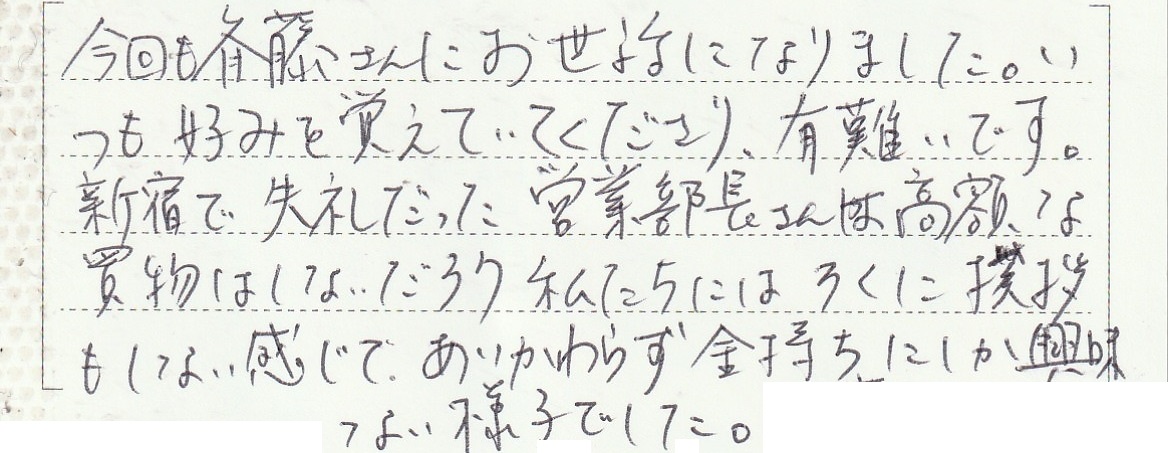 今回も斉藤さんにお世話になりました。い
つも好みを覚えていてくださり、有難いです。
新宿で失礼だった営業部長さんは高額な
買物はしないだろう私たちにはろくに挨拶
もしない感じで、あいかわらず金持ちにしか興味
ない様子でした。